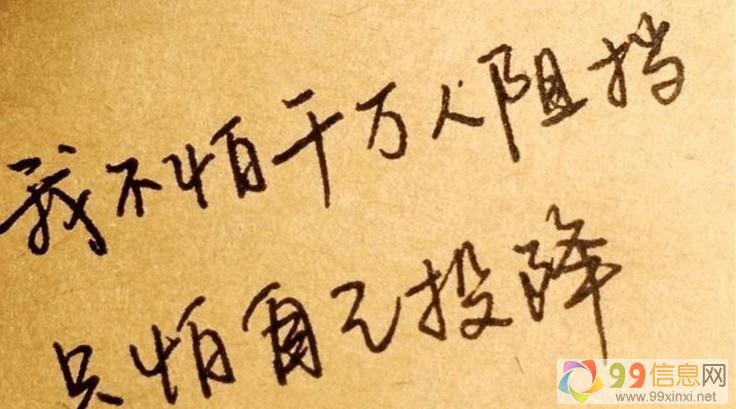 我不怕千万人阻挡
只怕自己投降
99信息网
www.99xinxi.net